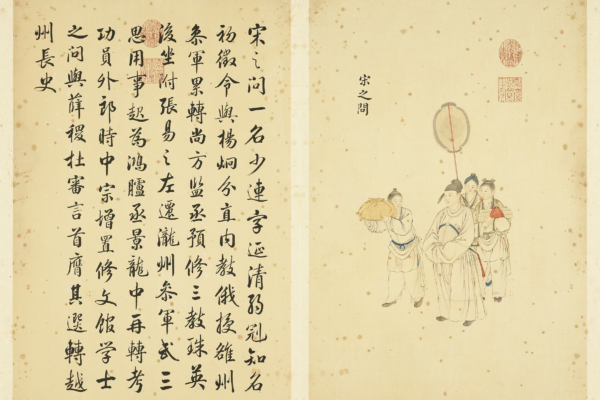 宋之問
宋之問一名少連字延清弱冠知名
初徵令與楊炯分直内教俄授雒州
叅軍累轉尚方監丞預修三教珠英
後坐附張易之左遷瀧州叅軍武三
思用事起為鴻臚丞景龍中再轉考
功員外郎時中宗增置修文館学士
之問與薛稷杜審言首膺其選轉越
州長史